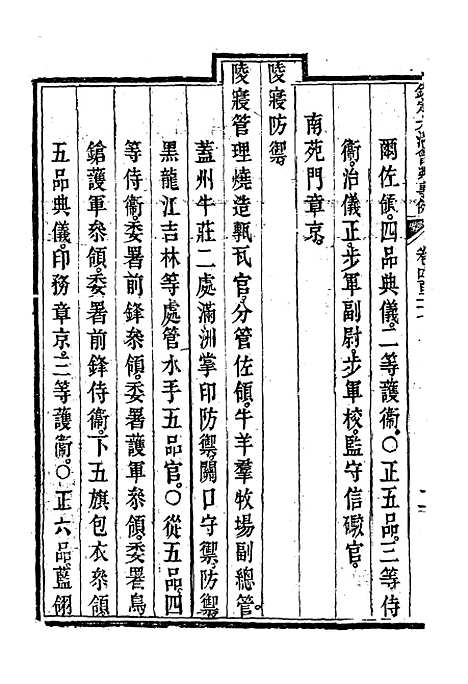 欽定大清會典事例
爾佐領。四品典儀。二等護衞。○正五品。三等侍
衞。治儀正。步軍副尉。步軍校。監守信礮官。
南苑門章京。
陵寢防禦
陵寢管理燒造甎瓦官。分管佐領。牛羊羣牧場副總管。
蓋州牛莊二處滿洲掌印防禦。關口守禦。防禦
黑龍江吉林等處管水手五品官。○從五品。四
等侍衞。委署前鋒參領。委署護軍參領。委署鳥
鎗護軍參領。委署前鋒侍衞。下五旗包衣參領
五品典儀。印務章京。三等護衞。○正六品。藍翎